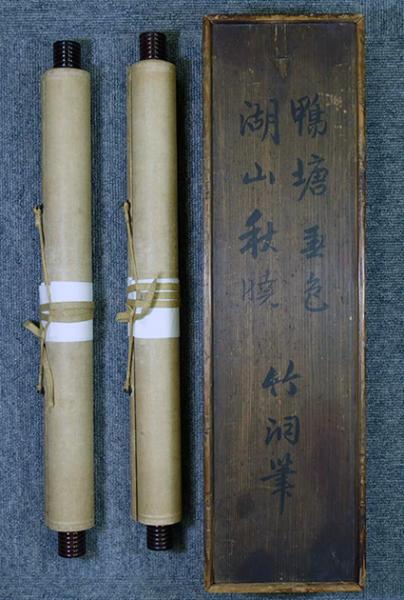 鴨塘春色
湖山秋曉
竹洞筆